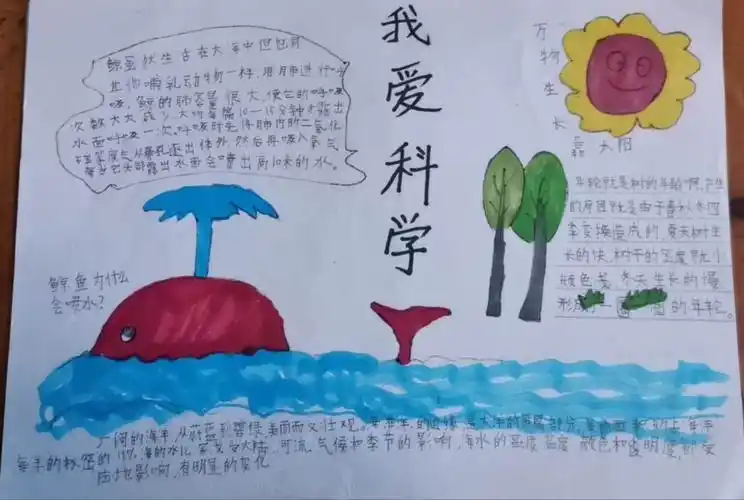 我爱科学
鲸虽然生活在大海中但也有
其他哺乳动物一样,用肺进行呼
吸,鲸的肺容量很大,使它的呼吸
次数大大减少,大约每隔10-15分钟才露出
水面呼吸一次,呼吸时先将肺内的二氧化
碳等废气从鼻孔逐出体外然后再吸入氧气
露出水面会喷出高10米的水。
鲸鱼为什么
会喷水?
万物生长
靠太阳
年轮就是树的年龄啊,产生
的原因就是由于春秋冬四
季变换造成的,夏天树生
长的快,树干的密度就小
颜色浅,冬天生长的慢
形成了一圈 的年轮。
广阔的海洋,从蔚蓝到碧绿,美丽而又壮观。海洋的边缘,是大洋的附属部分,海的面积约占海洋
的11%,海的水 受大陆,河流,气候和季节的影响,海水的温度盐度颜色和透明度,都受
陆地影响,有明显的变化